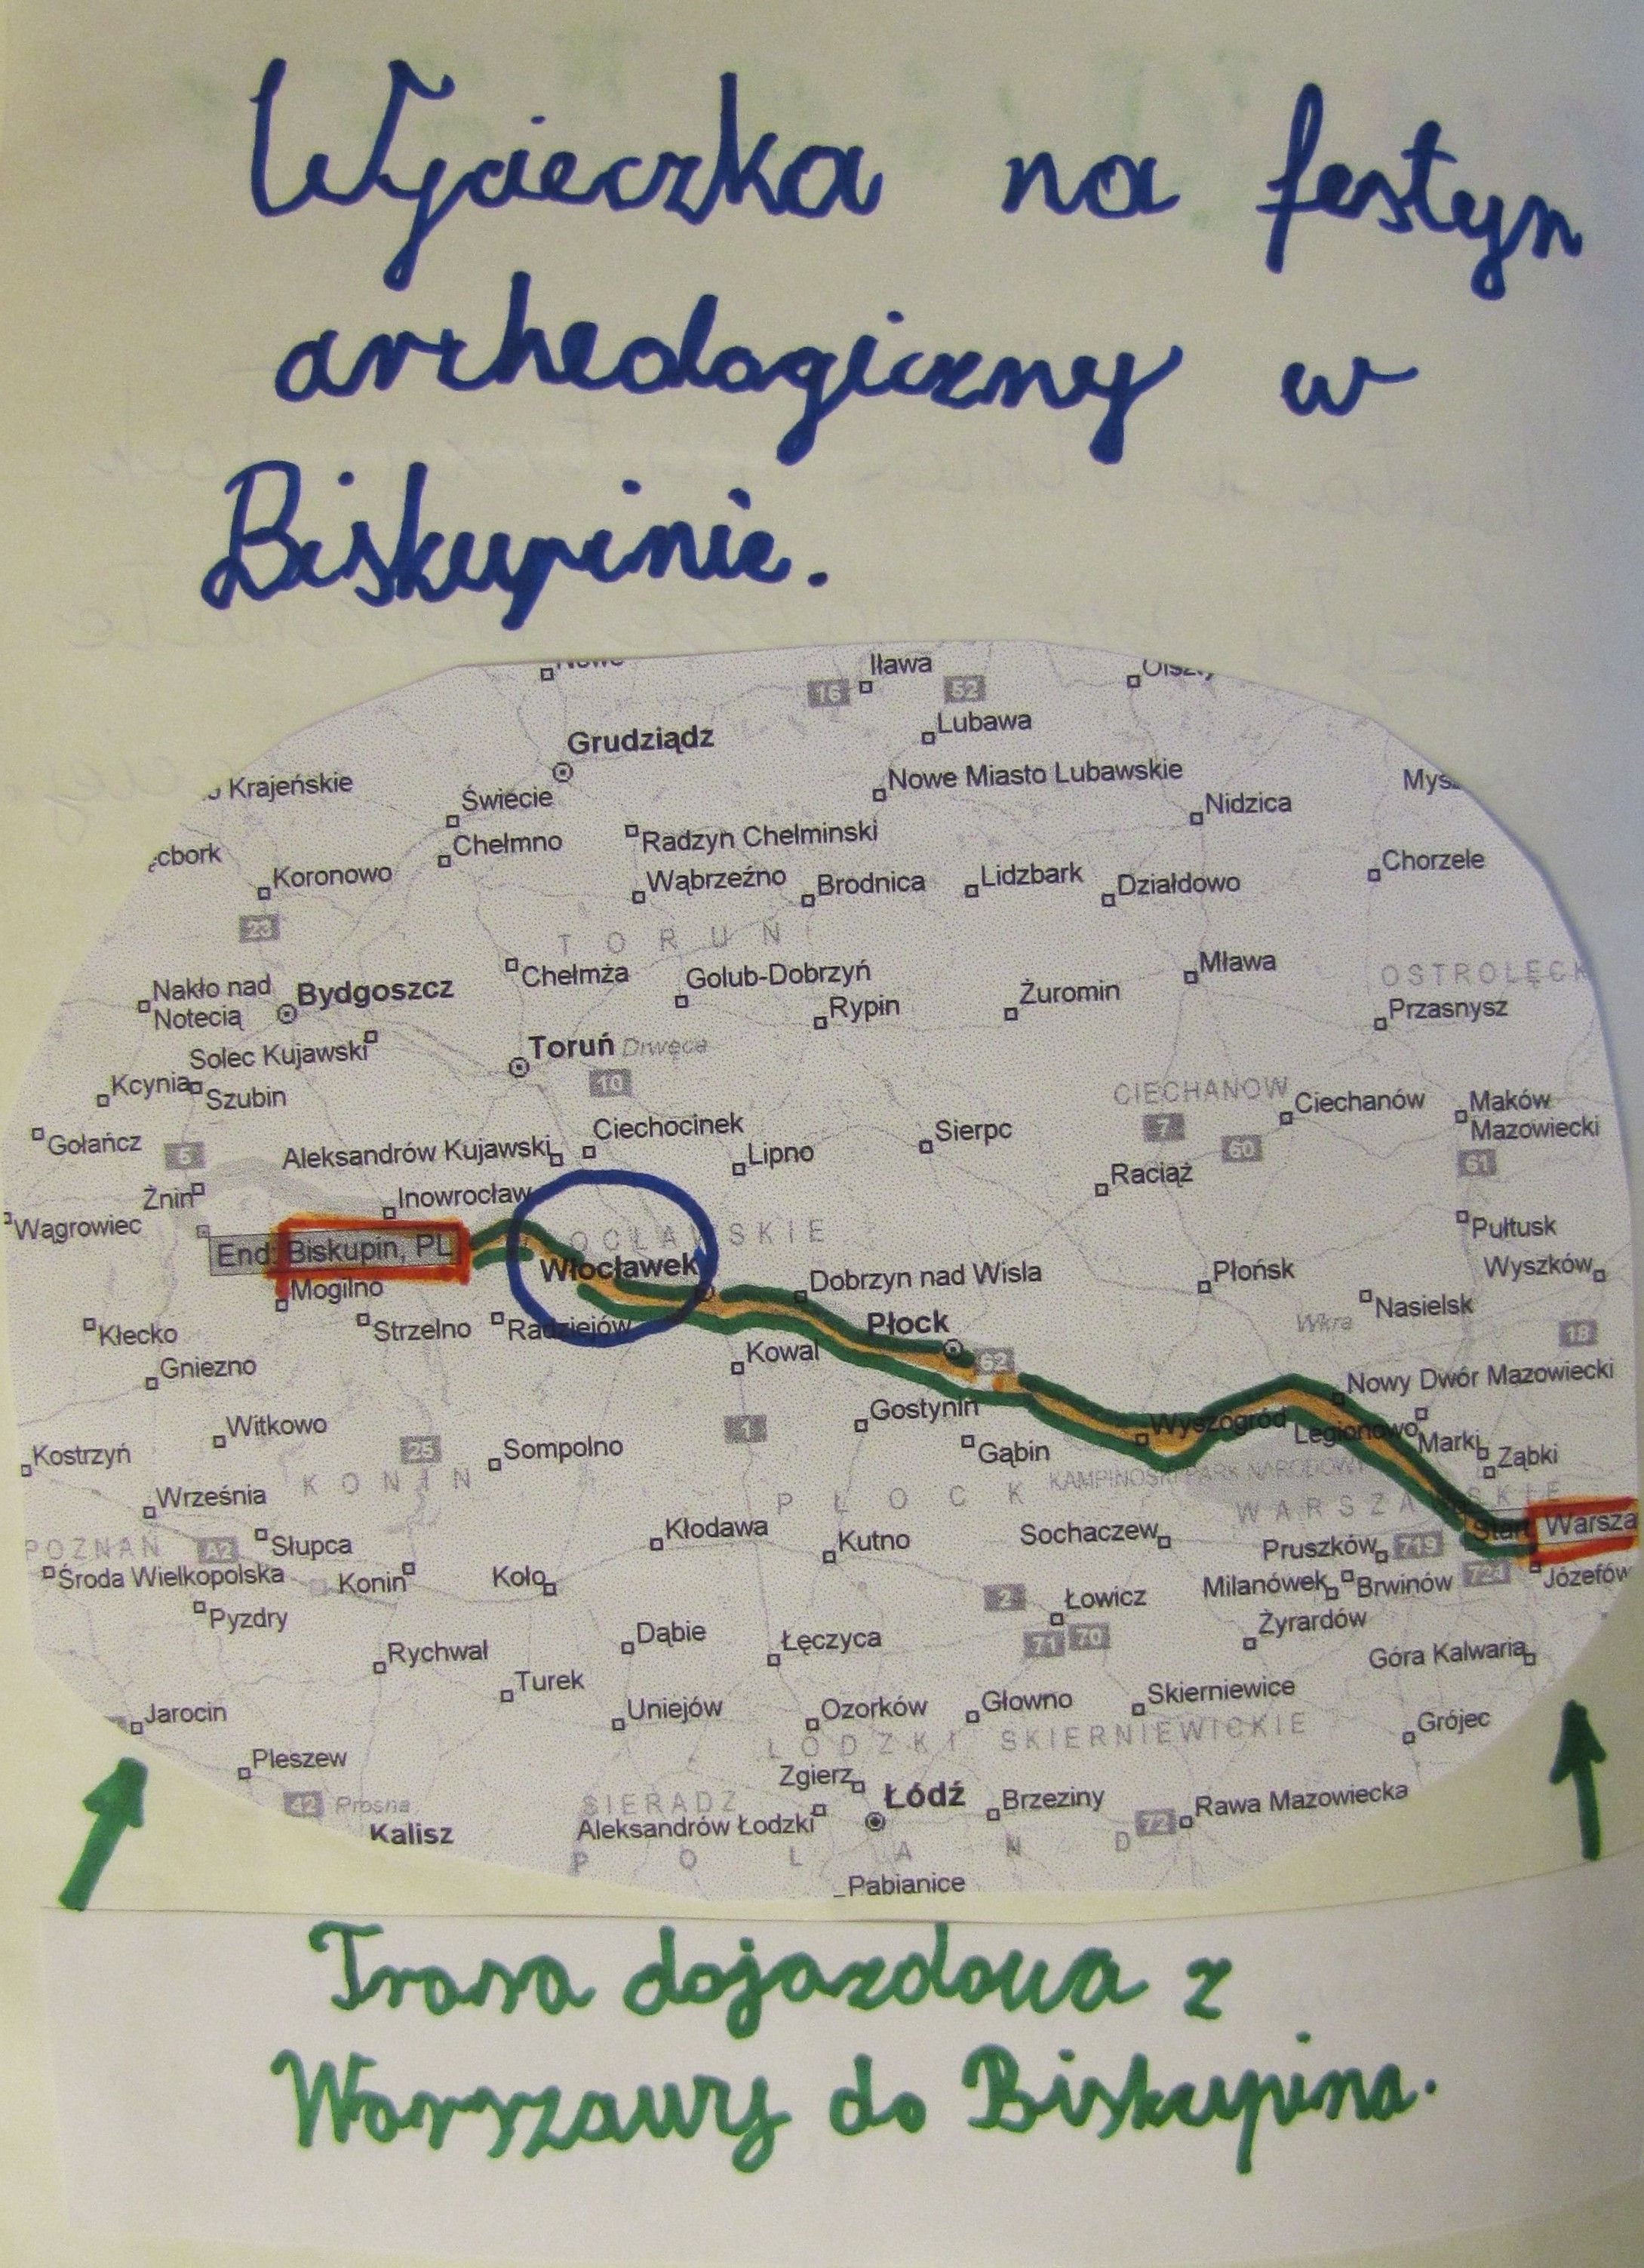 Wycieczka na festyn
archeologiczny w
Biskupinie.
Iława
16
52
Lubawa
Grudziądz
Nowe Miasto Lubawskie
Krajeńskie
Świecie
Nidzica
Chełmno
Radzyn Chelminski
Koronowo
Wąbrzeźno
Brodnica
Lidzbark
Działdowo
Chorzele
23
TORUŃ
Chełmża
Golub-Dobrzyń
Mława
Nakło nad
Notecią
Bydgoszcz
Rypin
Żuromin
Przasnysz
Solec Kujawski
Toruń
Drwęca
10
Kcynia
Szubin
CIECHANOW
Ciechanów
Maków
Mazowiecki
Gołańcz
5
Aleksandrów Kujawski
Ciechocinek
Lipno
Sierpc
7
60
61
Raciąż
Żnin
Inowrocław
Wągrowiec
Pułtusk
End: Biskupin, PL
Włocławek
Dobrzyn nad Wisla
Płońsk
Wyszków
Mogilno
Nasielsk
Kłecko
Strzelno
Radziejów
Płock
Wkra
18
Gniezno
Kowal
62
Nowy Dwór Mazowiecki
Witkowo
Gostynin
Wyszogród
Legionowo
Kostrzyń
25
Sompolno
1
Gąbin
Marki
Ząbki
KONIN
KAMPINOSKI PARK NARODOWY
Września
PŁOCK
Start
Warsza
POZNAŃ
A2
Słupca
Kłodawa
Kutno
Sochaczew
Pruszków
719
Środa Wielkopolska
Konin
Koło
Milanówek
Brwinów
Józefów
Pyzdry
2
Łowicz
Żyrardów
Rychwał
Dąbie
Łęczyca
71
70
Góra Kalwaria
Turek
Jarocin
Uniejów
Ozorków
Głowno
Skierniewice
Grójec
Pleszew
ŁÓDZKI
SKIERNIEWICKIE
Zgierz
42
Prosna
SIERADZ
Łódź
Brzeziny
72
Rawa Mazowiecka
Kalisz
Aleksandrów Łodzki
POLAND
Pabianice
Trasa dojazdowa z
Warszawy do Biskupina.